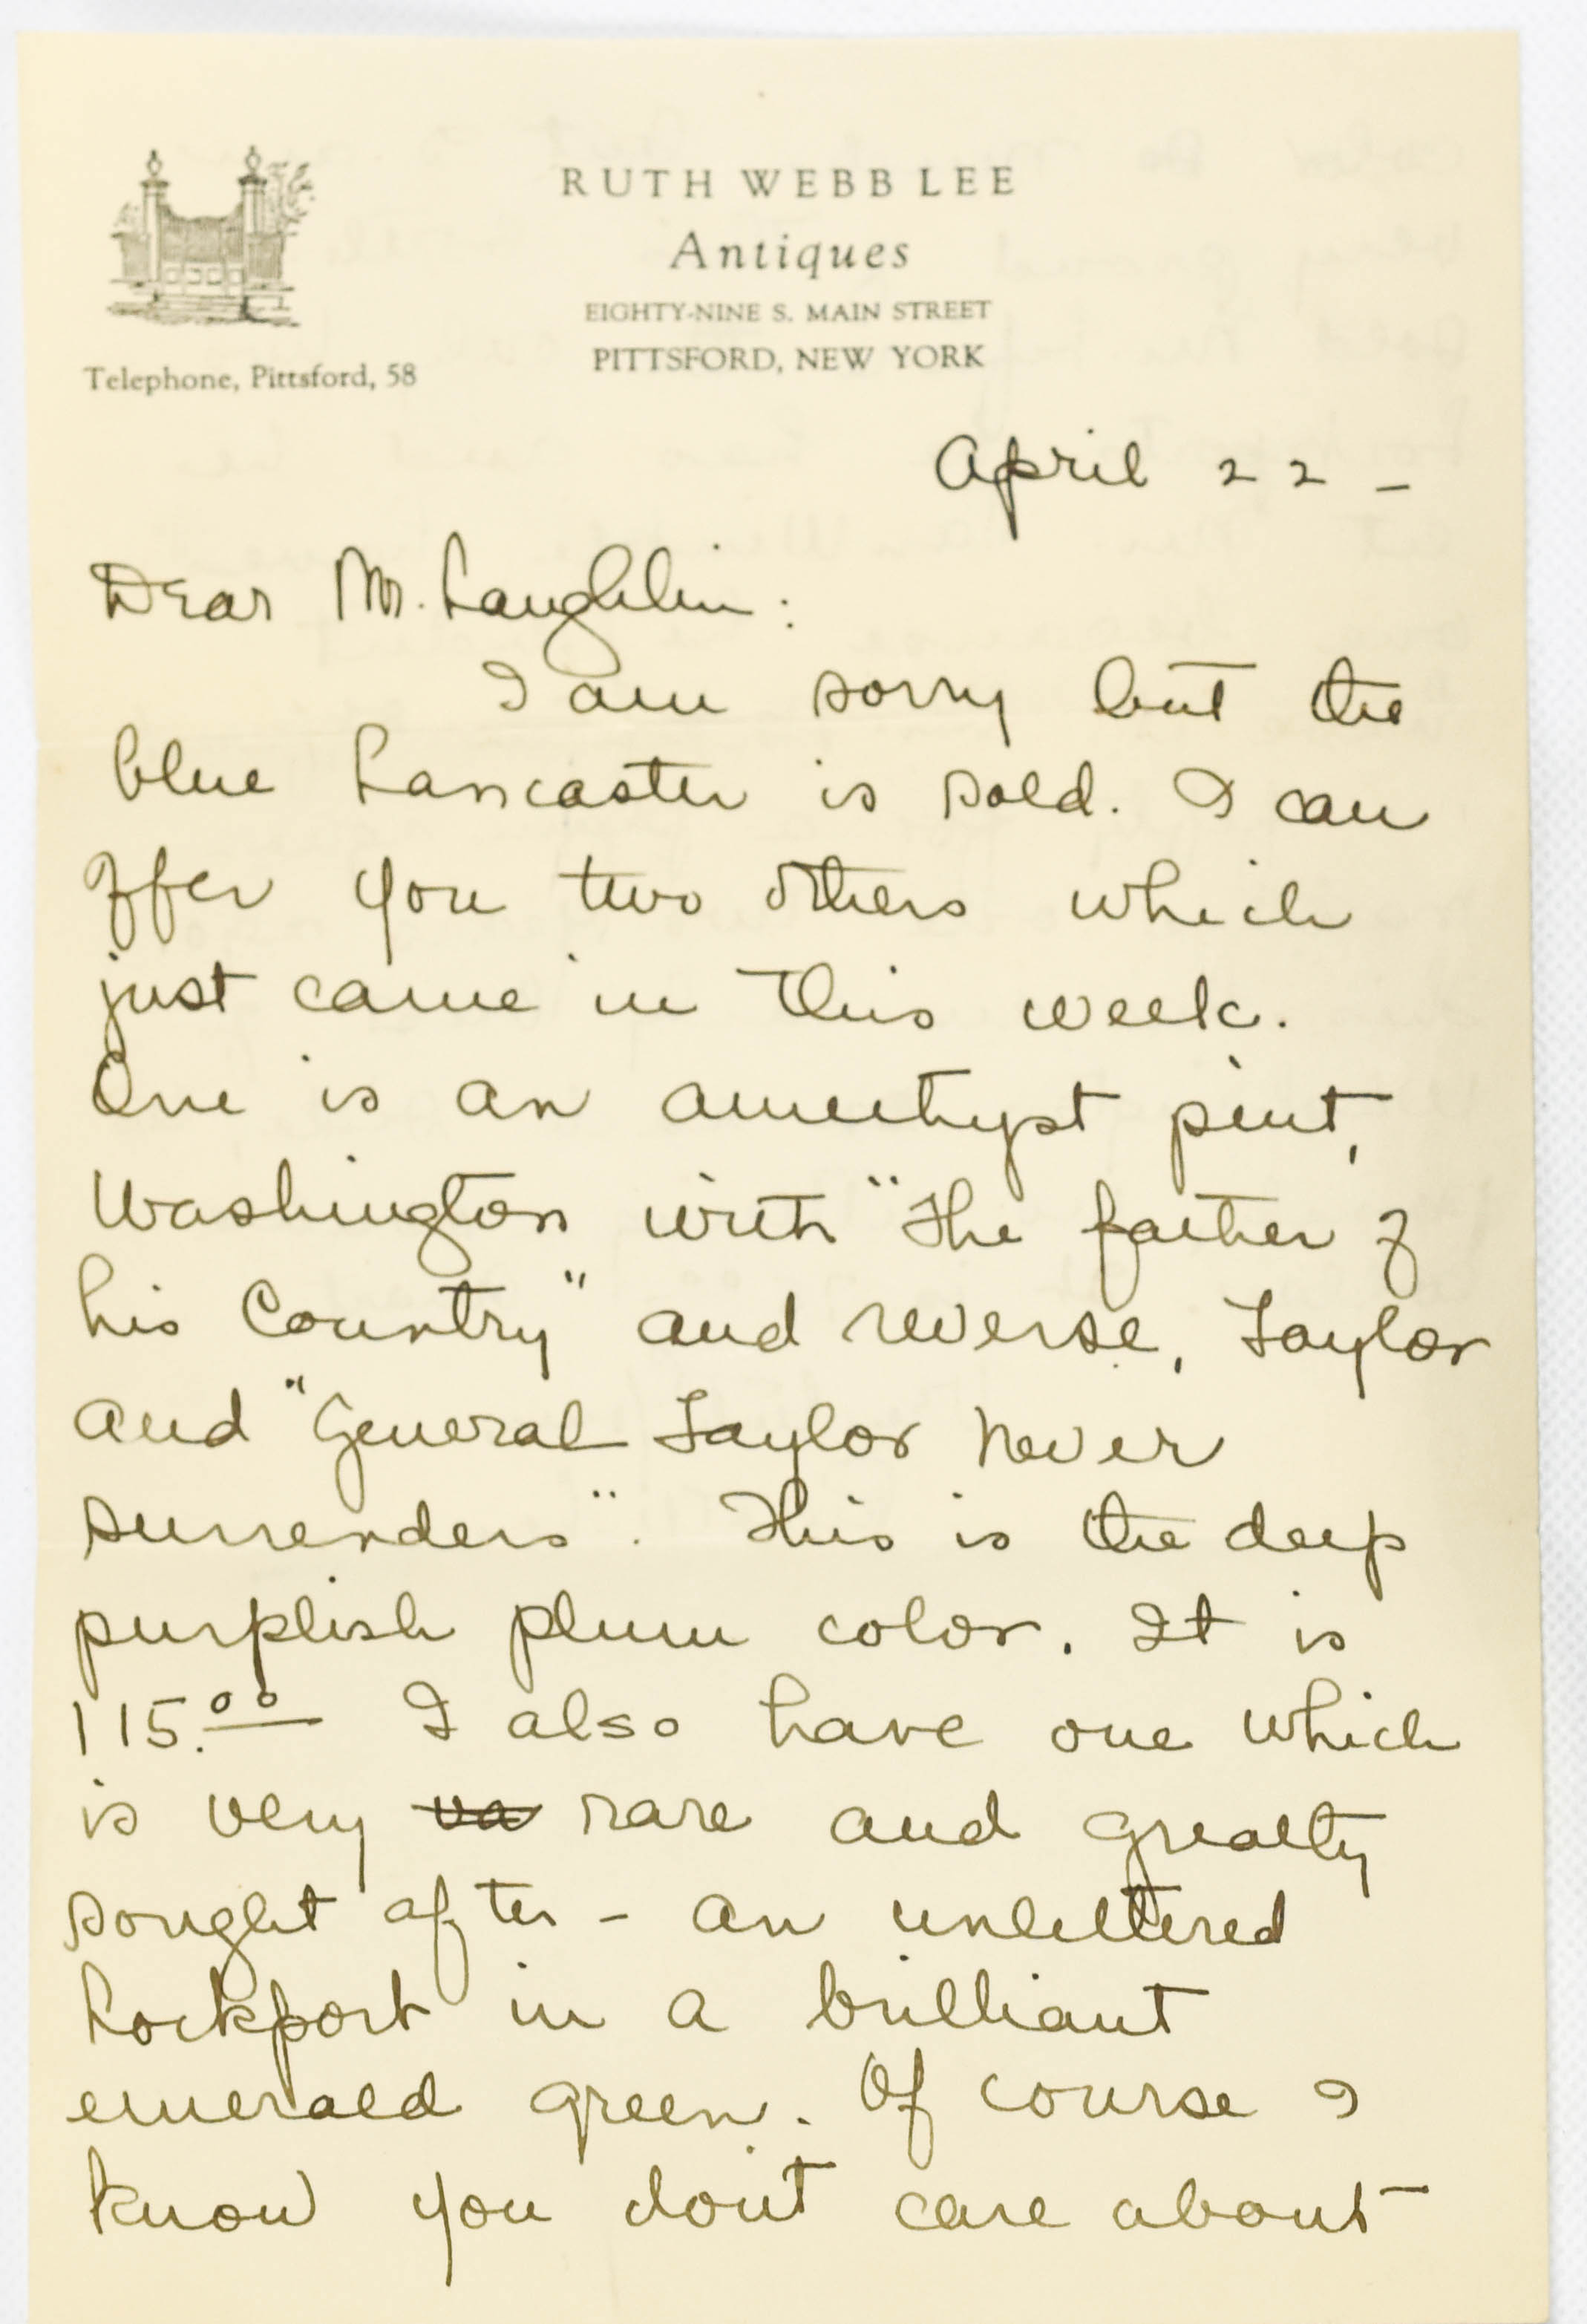 RUTH WEBB LEE
Antiques
EIGHTY-NINE S. MAIN STREET
PITTSFORD, NEW YORK
Telephone, Pittsford, 58
April 22 -
Dear Mr. Laughlin:
I am sorry but the
blue Lancaster is sold. I can
offer you two others which
just came in this week.
One is an amethyst pint,
Washington with "The father of
his Country" and reverse, Taylor
and "General Taylor Never
Surrenders". This is the deep
purplish plum color. It is
115.00 I also have one which
is very va rare and greatly
sought after - an unlettered
Lockport in a brilliant
emerald green. Of course I
know you don't care about